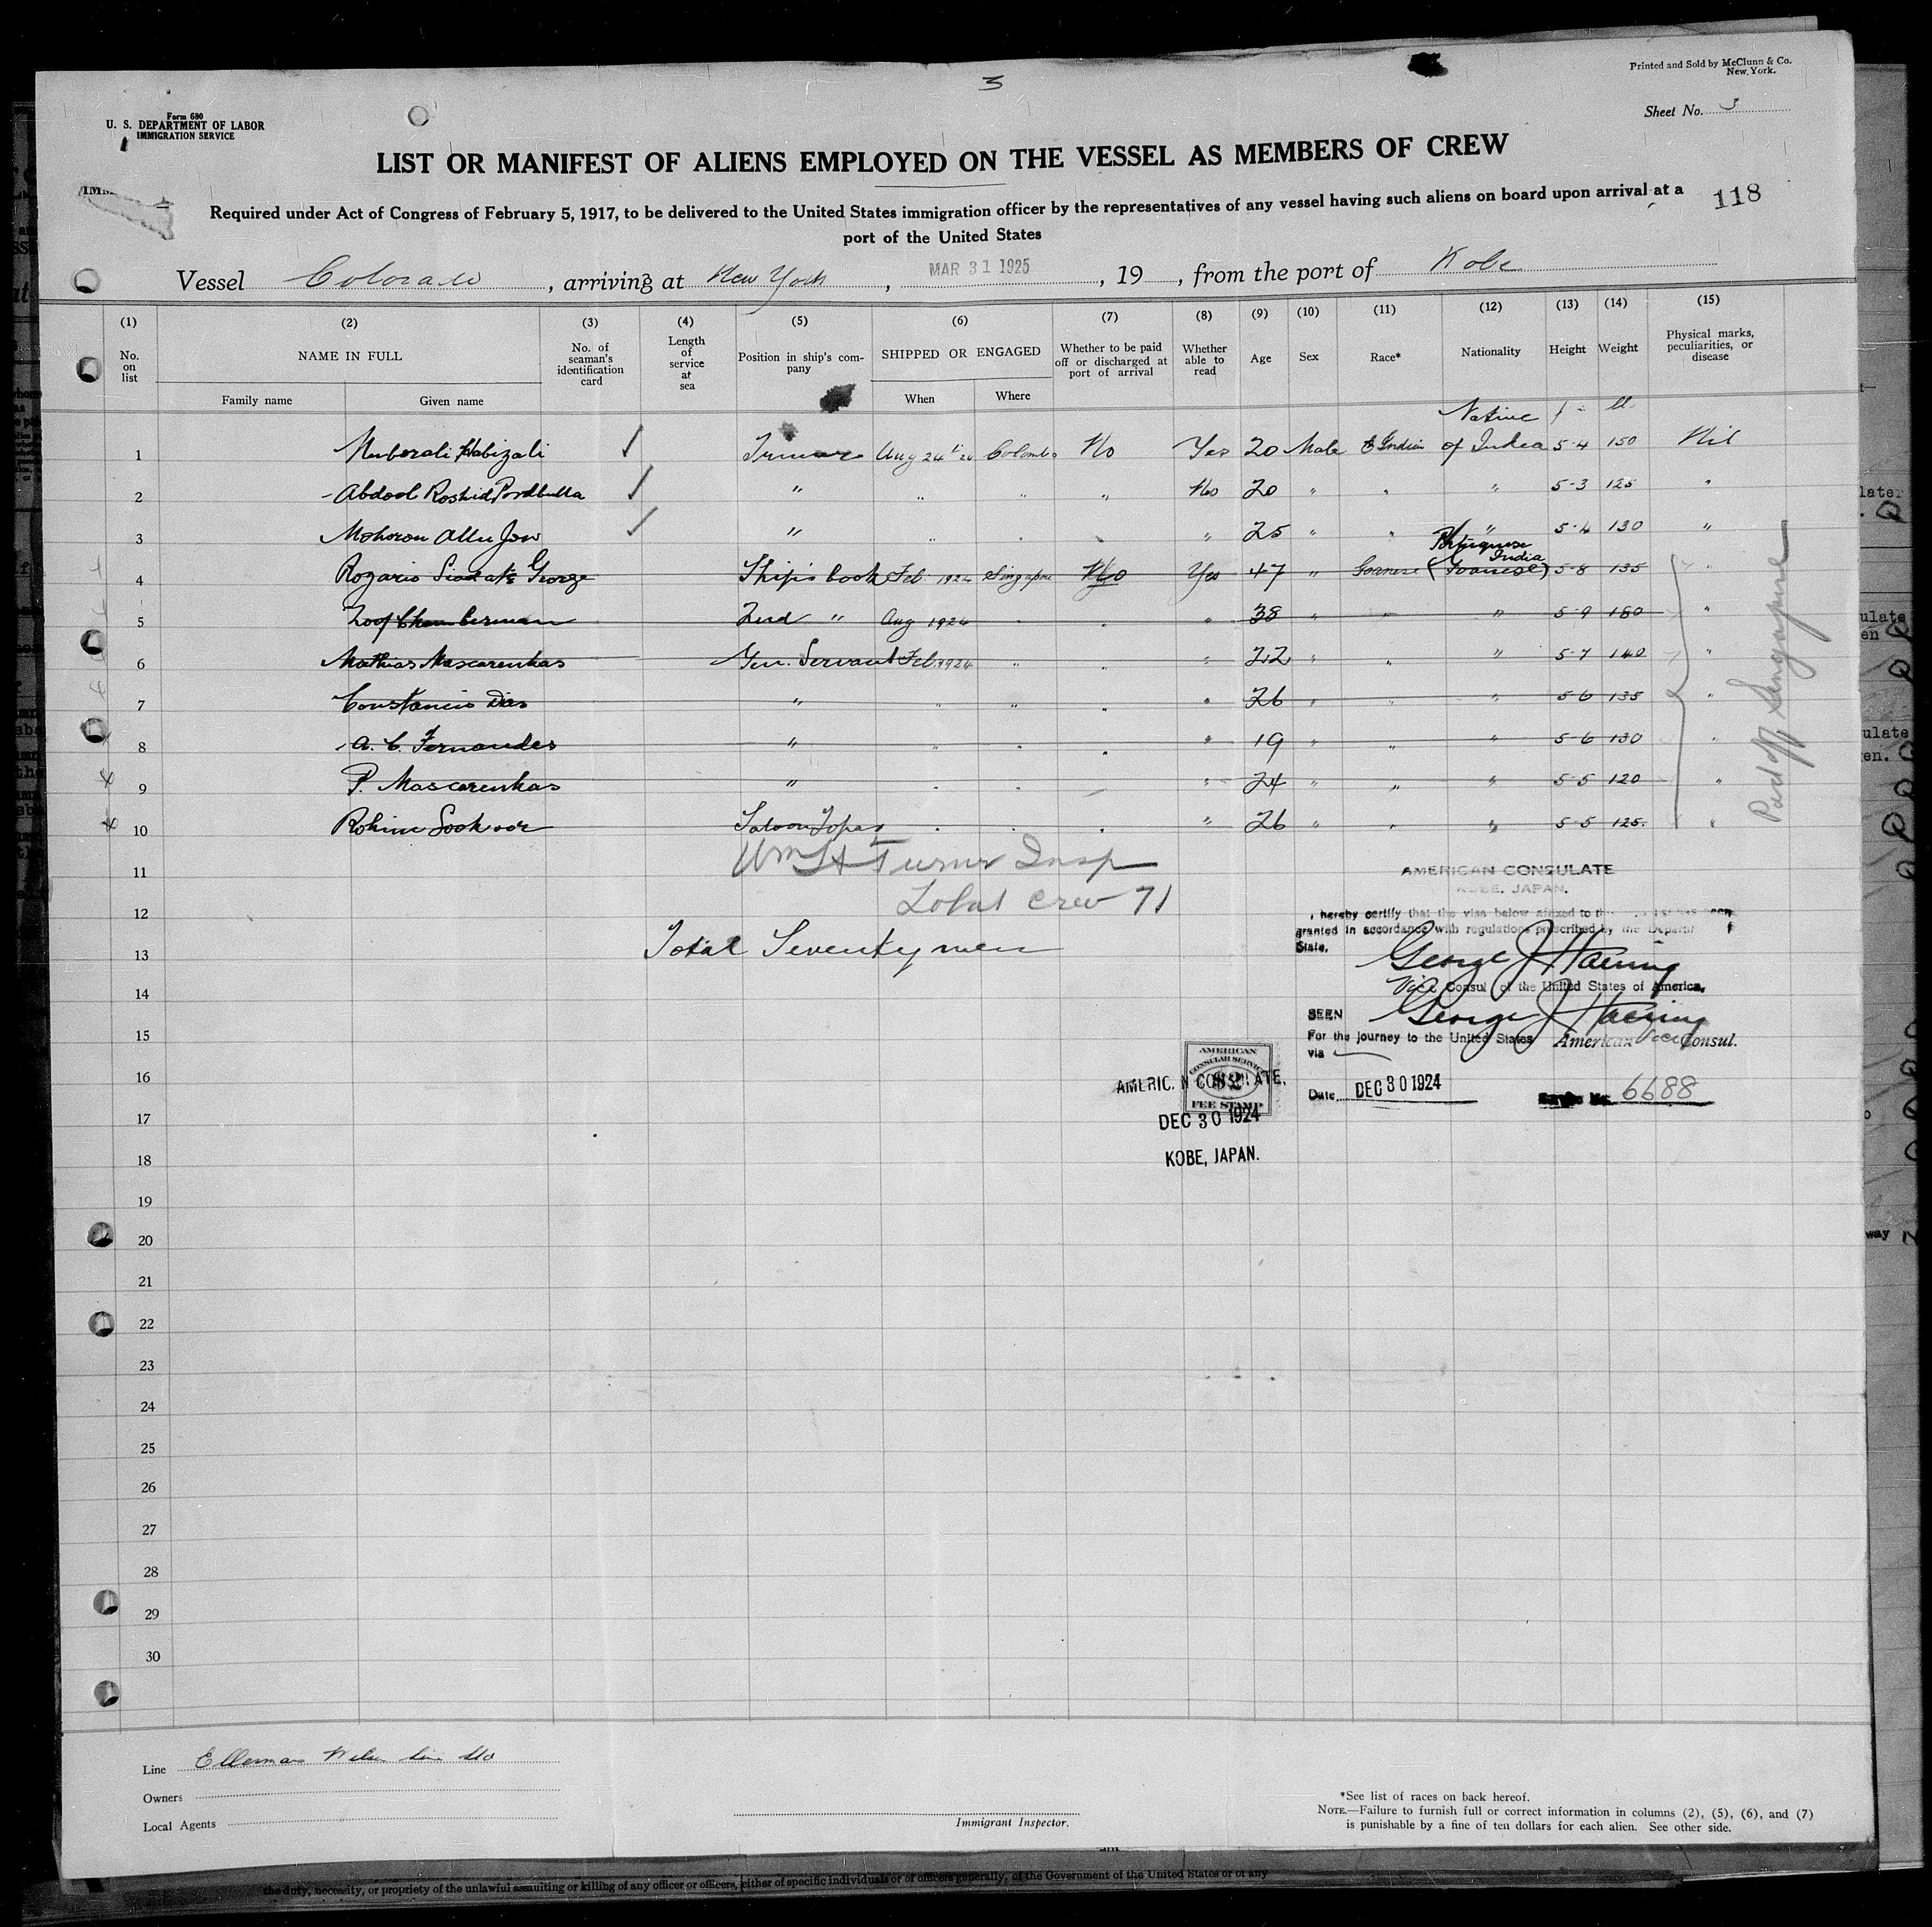 3
Printed and Sold by McClunn & Co.
New York.
Form 680
U. S. DEPARTMENT OF LABOR
IMMIGRATION SERVICE
Sheet No. 3
LIST OR MANIFEST OF ALIENS EMPLOYED ON THE VESSEL AS MEMBERS OF CREW
Required under Act of Congress of February 5, 1917, to be delivered to the United States immigration officer by the representatives of any vessel having such aliens on board upon arrival at a
port of the United States
118
Vessel Colorado, arriving at New York, MAR 31 1925, 19 , from the port of Kobe
(1) (2) (3) (4) (5) (6) (7) (8) (9) (10) (11) (12) (13) (14) (15)
No. on list
NAME IN FULL
Family name
Given name
No. of seaman's identification card
Length of service at sea
Position in ship's company
SHIPPED OR ENGAGED
When
Where
Whether to be paid off or discharged at port of arrival
Whether able to read
Age
Sex
Race*
Nationality
Height
Weight
Physical marks, peculiarities, or disease
Native
1 Habizali Aug 24 Colombo No Yes 20 Male Indian of India 5-4 150 Nil
2 Abdool Roshid " " " " No 20 " " " 5-3 125 "
3 " " " " " 25 " " " 5-4 130 "
Portuguese
India
4 Rozario George Ship's Cook Feb 1924 Singapore No Yes 47 " Goanese (Goanese) 5-8 135 "
5 2nd " Aug 1924 " " " 38 " " " 5-9 180 "
6 Mathias Mascarenhas Gen. Servant Feb 1924 " " " 22 " " " 5-7 140 "
7 Constancio Dias " " " " " 26 " " " 5-6 135 "
8 A. C. Fernandes " " " " " 19 " " " 5-6 130 "
9 P. Mascarenhas " " " " " 24 " " " 5-5 120 "
10 Saloon Topas " " " " 26 " " " 5-5 125 "
Paid off Singapore
11 Wm H Turner Insp
12 Total Crew 71
13 Total Seventy men
14
15
16
17
18
19
20
21
22
23
24
25
26
27
28
29
30
AMERICAN CONSULATE
KOBE, JAPAN.
I hereby certify that the visa below affixed to
granted in accordance with regulations prescribed by the
State.
George J Haering
Vice Consul of the United States of America.
SEEN George J Haering
For the journey to the United States American Vice Consul.
via
Date DEC 30 1924 6688
AMERICAN
CONSULAR SERVICE
$2
FEE STAMP
AMERICAN CONSULATE,
DEC 30 1924
KOBE, JAPAN.
Line Ellerman Wilson Line Ltd
Owners
Local Agents
Immigrant Inspector.
*See list of races on back hereof.
NOTE.—Failure to furnish full or correct information in columns (2), (5), (6), and (7)
is punishable by a fine of ten dollars for each alien. See other side.
the duty, necessity, or propriety of the unlawful assaulting or killing of any officer or officers, either of specific individuals or of officers generally, of the Government of the United States or of any